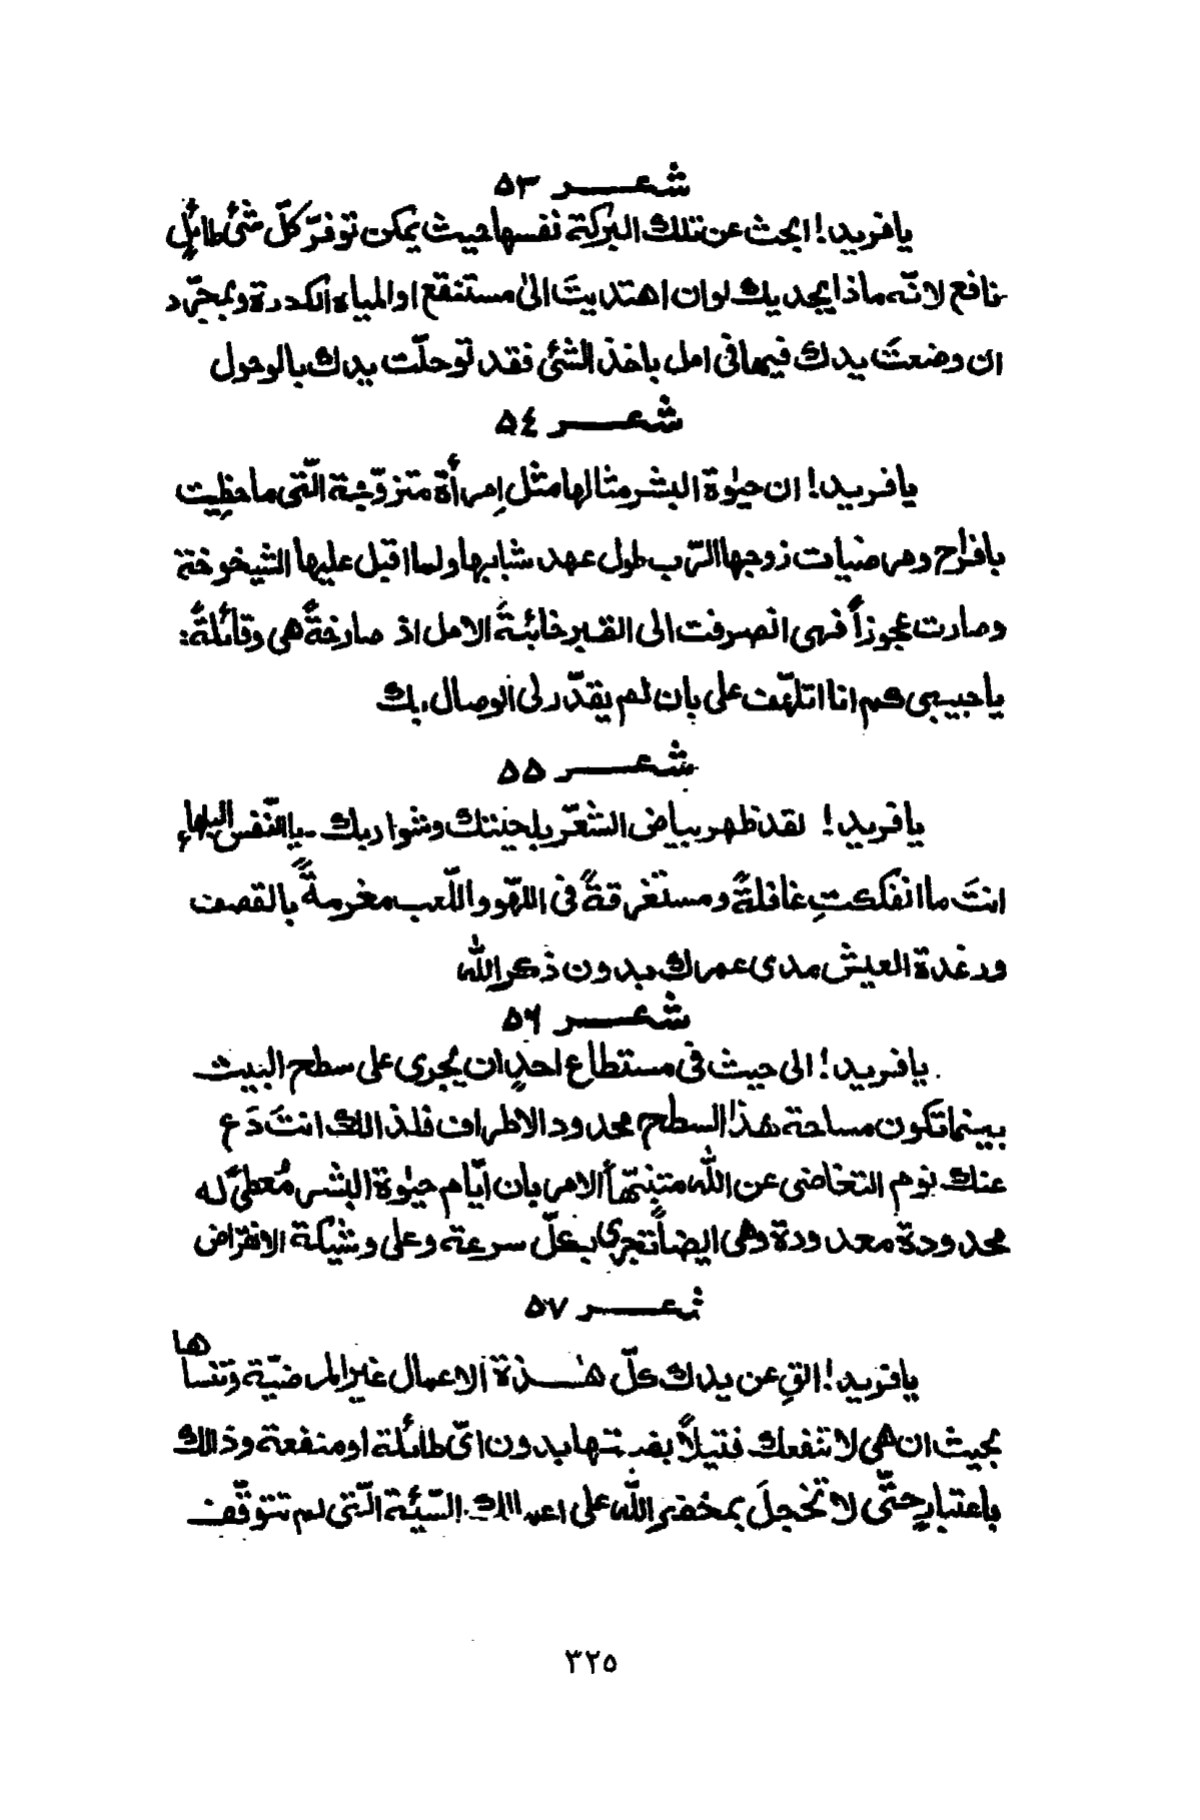 شعر ٥٣
يا فريد! ابحث عن تلك البركة نفسها حيث يمكن توفّر كلّ شئ طائلٍ
نافع لانّه ماذا يجديك لو ان اهتديتَ الىٰ مستنقع او المياه الكدرة وبمجرّد
ان وضعتَ يدك فيها فى امل باخذ الشئ فقد توحلّت يدك بالوحول
شعر ٥٤
يا فريد! ان حيٰوة البشر مثالها مثل إمرأة متزوّجة الّتى ما حظِيت
بافراح ومرضيات زوجها الرّب طول عهد شبابها ولما اقبل عليها الشيخوخة
وصارت عجوزاً فهى انصرفت الى القبر خائبةً الامل اذ صارخةً هى وقائلةً:
يا حبيبى كم انا اتلهّف على بان لم يقدّر لى الوصال بك
شعر ٥٥
يا فريد! لقد ظهر بياض الشعّر بلحيتك وشواربك - يا النّفس البلهاء
انتَ ما انفكتِ غافلةً ومستغرقةً فى اللهّو واللّعب مغرمةً بالقصف
ورغدة العيش مدى عمرك بدون ذكر الله
شعر ٥٦
يا فريد! الى حيث فى مستطاع احدٍ ان يجرى على سطح البيت
بينما تكون مساحة هذا السطح محدود الاطراف فلذالك انتَ دَع
عنك نوم التغاضى عن الله متنبّهاً الامر بان ايّام حيٰوة البشر مُعطىً له
محدودة معدودة وهى ايضاً تجرى بكلّ سرعة وعلى وشيكة الانقراض
شعر ٥٧
يا فريد! القِ عن يدك كلّ هٰذة الاعمال غير المرضيّة وتنساها
بحيث ان هى لا تنفعك فتيلاً بفدتها بدون اىّ طائلة او منفعة وذالك
باعتبارٍ حتّى لا تخجلَ بمحضر الله على السّيئة الّتى لم تتوقّف
٣٢٥